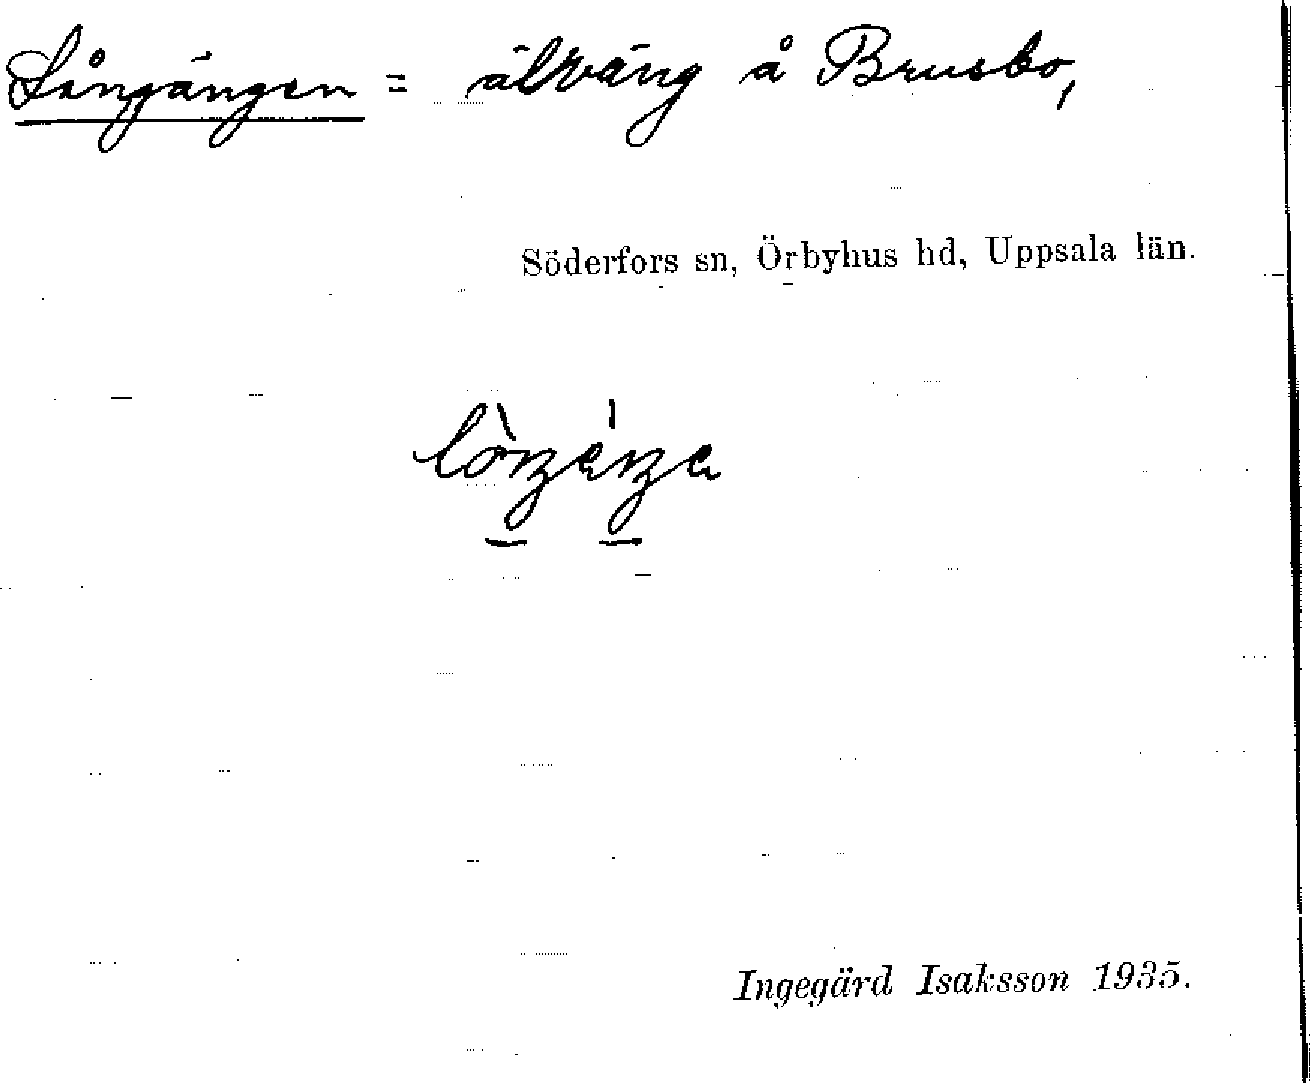 Långängen = älväng å Brusbo,
Söderfors sn, Örbyhus hd, Uppsala län.
Ingegärd Isaksson 1935.